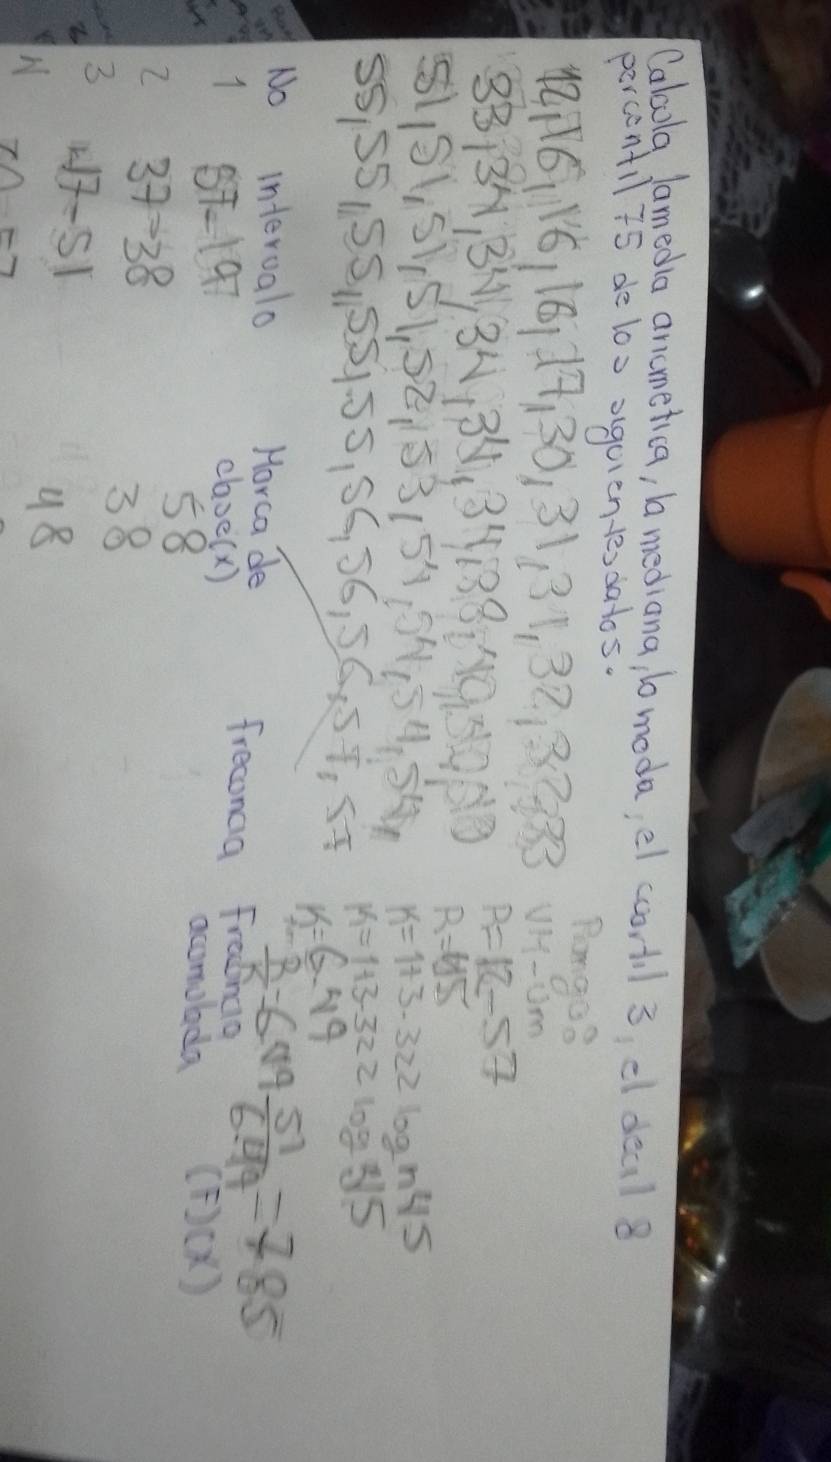 Calcula la media aricmetica, la mediana, la moda, el cuartil 3, el decil 8
percentil 75 de los siguientes datos.
12, 16, 16, 16, 17, 30, 31, 31, 32, 32, 33
33, 34, 34, 34, 34, 34, 38, 40, 50, 50
51, 51, 51, 51, 52, 53, 54, 54, 54, 54,
55, 55, 55, 55, 55, 56, 56, 56, 57, 57
Rango:
VM-Vm
R=12-57
R=45
K=1+3.322 log n45
K=1+3.322 log 45
K=6.49
R/K = 6.49 51/6.49 = 785
No intervalo Marca de clase(x) frecuncia frecuncia acomulada (F)(X)
1 57=197 58
2 37=38 38
3 47-51 48